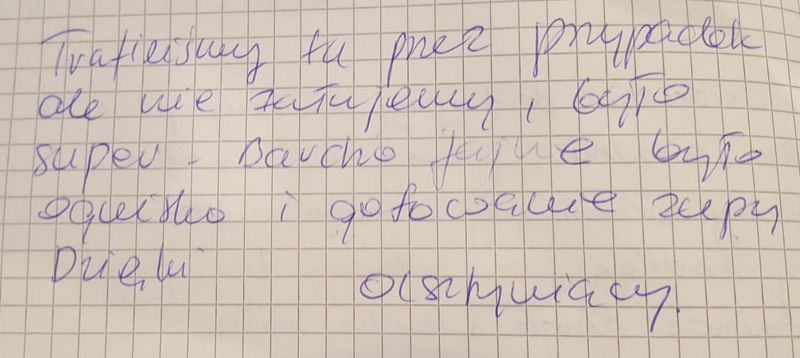 Trafiliśmy tu przez przypadek
ale nie żałujemy, było
super. Bardzo fajne było
ognisko i gotowanie zupy
Dzięki
Olsztyniacy.